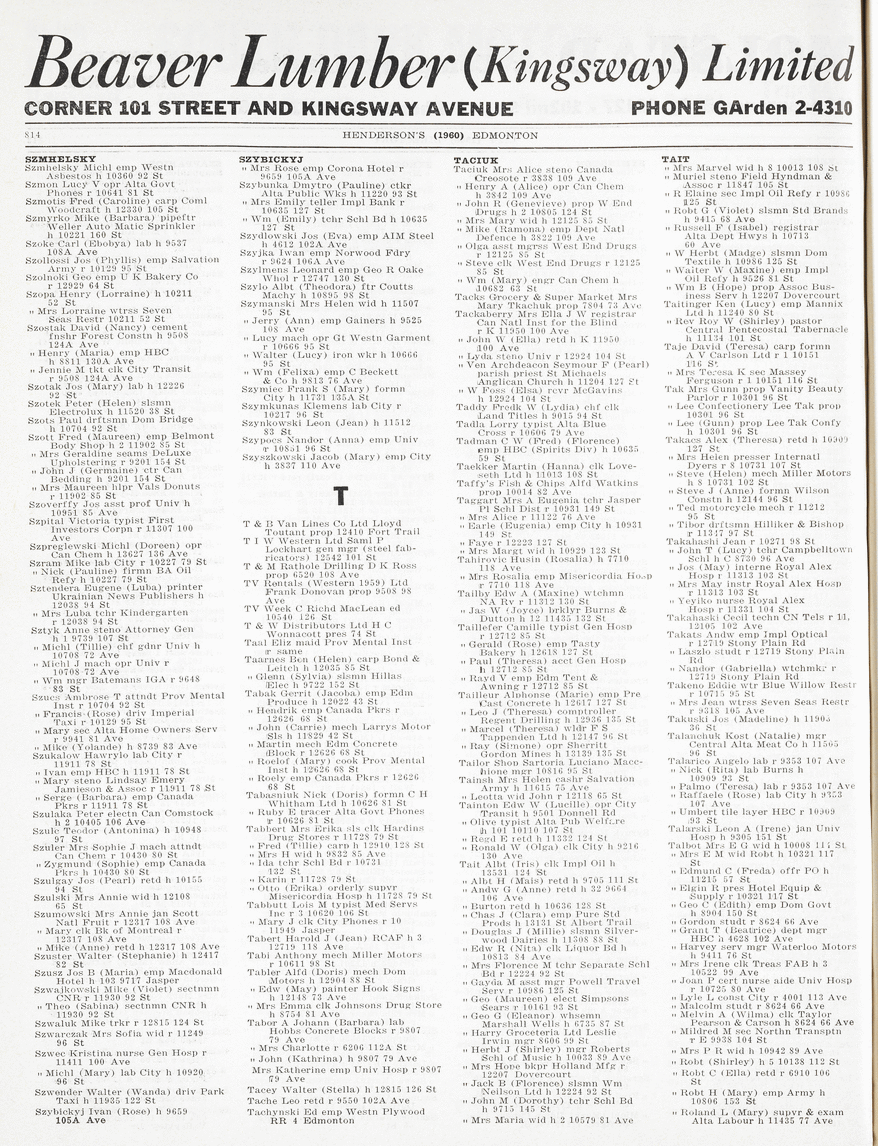 Beaver Lumber (Kingsway) Limited
CORNER 101 STREET AND KINGSWAY AVENUE PHONE GArden 2-4310
814 HENDERSON'S (1960) EDMONTON
SZMHELSKY
Szmhelsky Michl emp Westn
Asbestos h 10360 92 St
Szmon Lucy V opr Alta Govt
Phones r 10641 81 St
Szmotis Fred (Caroline) carp Coml
Woodcraft h 12330 105 St
Szmyrko Mike (Barbara) pipeftr
Weller Auto Matic Sprinkler
h 10221 160 St
Szoke Carl (Ebobya) lab h 9537
108A Ave
Szollossi Jos (Phyllis) emp Salvation
Army r 10129 95 St
Szolnoki Geo emp U K Bakery Co
r 12929 64 St
Szopa Henry (Lorraine) h 10211
52 St
" Mrs Lorraine wtrss Seven
Seas Restr 10211 52 St
Szostak David (Nancy) cement
fnshr Forest Constn h 9508
124A Ave
" Henry (Maria) emp HBC
h 8811 130A Ave
" Jennie M tkt clk City Transit
r 9508 124A Ave
Szotak Jos (Mary) lab h 12226
92 St
Szotek Peter (Helen) slsmn
Electrolux h 11520 38 St
Szots Paul drftsmn Dom Bridge
h 10704 92 St
Szott Fred (Maureen) emp Belmont
Body Shop h 2 11902 85 St
" Mrs Geraldine seams DeLuxe
Upholstering r 9201 154 St
" John J (Germaine) ctr Can
Bedding h 9201 154 St
" Mrs Maureen hlpr Vals Donuts
r 11902 85 St
Szoverffy Jos asst prof Univ h
10951 85 Ave
Szpital Victoria typist First
Investors Corpn r 11307 100
Ave
Szpreglewski Michl (Doreen) opr
Can Chem h 13627 136 Ave
Szram Mike lab City r 10227 79 St
" Nick (Pauline) firmn BA Oil
Refy h 10227 79 St
Sztendera Eugene (Luba) printer
Ukrainian News Publishers h
12038 94 St
" Mrs Luba tchr Kindergarten
r 12038 94 St
Sztyk Anne steno Attorney Gen
h 1 9739 107 St
" Michl (Tillie) chf gdnr Univ h
10708 72 Ave
" Michl J mach opr Univ r
10708 72 Ave
" Wm mgr Batemans IGA r 9648
83 St
Szucs Ambrose T attndt Prov Mental
Inst r 10704 92 St
" Francis (Rose) driv Imperial
Taxi r 10129 95 St
" Mary sec Alta Home Owners Serv
r 9941 81 Ave
" Mike (Yolande) h 8739 83 Ave
Szukalow Hawrylo lab City r
11911 78 St
" Ivan emp HBC h 11911 78 St
" Mary steno Lindsay Emery
Jamieson & Assoc r 11911 78 St
" Serge (Barbara) emp Canada
Pkrs r 11911 78 St
Szulaka Peter electn Can Comstock
h 2 10405 106 Ave
Szulc Teodor (Antonina) h 10948
97 St
Szuler Mrs Sophie J mach attndt
Can Chem r 10430 80 St
" Zygmund (Sophie) emp Canada
Pkrs h 10430 80 St
Szulgay Jos (Pearl) retd h 10155
94 St
Szulski Mrs Annie wid h 12108
65 St
Szumowski Mrs Annie jan Scott
Natl Fruit r 12317 108 Ave
" Mary clk Bk of Montreal r
12317 108 Ave
" Mike (Anne) retd h 12317 108 Ave
Szuster Walter (Stephanie) h 12417
82 St
Szusz Jos B (Maria) emp Macdonald
Hotel h 103 9717 Jasper
Szwajkowski Mike (Violet) sectnmn
CNR r 11930 92 St
" Theo (Sabina) sectnmn CNR h
11930 92 St
Szwaluk Mike trkr r 12815 124 St
Szwarczak Mrs Sofia wid r 11249
96 St
Szwec Kristina nurse Gen Hosp r
11411 100 Ave
" Michl (Mary) lab City h 10920
96 St
Szwender Walter (Wanda) driv Park
Taxi h 11935 122 St
Szybickyj Ivan (Rose) h 9659
105A Ave
SZYBICKYJ
" Mrs Rose emp Corona Hotel r
9659 105A Ave
Szybunka Dmytro (Pauline) ctkr
Alta Public Wks h 11220 93 St
" Mrs Emily teller Impl Bank r
10635 127 St
" Wm (Emily) tchr Schl Bd h 10635
127 St
Szydlowski Jos (Eva) emp AIM Steel
h 4612 102A Ave
Szyjka Iwan emp Norwood Fdry
r 9624 106A Ave
Szylmens Leonard emp Geo R Oake
Whol r 12747 130 St
Szylo Albt (Theodora) ftr Coutts
Machy h 10895 98 St
Szymanski Mrs Helen wid h 11507
95 St
" Jerry (Ann) emp Gainers h 9525
108 Ave
" Lucy mach opr Gt Westn Garment
r 10666 95 St
" Walter (Lucy) iron wkr h 10666
95 St
" Wm (Felixa) emp C Beckett
& Co h 9813 76 Ave
Szymiec Frank S (Mary) formn
City h 11731 135A St
Szymkunas Klemens lab City r
10217 96 St
Szynkowski Leon (Jean) h 11512
83 St
Szypocs Nandor (Anna) emp Univ
r 10851 96 St
Szyszkowski Jacob (Mary) emp City
h 3837 110 Ave
T
T & B Van Lines Co Ltd Lloyd
Toutant prop 12410 Fort Trail
T I W Western Ltd Saml P
Lockhart gen mgr (steel fab-
ricators) 12542 101 St
T & M Rathole Drilling D K Ross
prop 6520 108 Ave
TV Rentals (Western 1959) Ltd
Frank Donovan prop 9508 98
Ave
TV Week C Richd MacLean ed
10540 126 St
T & W Distributors Ltd H C
Wonnacott pres 74 St
Taal Eliz maid Prov Mental Inst
r same
Taarnes Ben (Helen) carp Bond &
Leitch h 12035 85 St
" Glenn (Sylvia) slsmn Hillas
Elec h 9722 152 St
Tabak Gerrit (Jacoba) emp Edm
Produce h 12022 43 St
" Hendrik emp Canada Pkrs r
12626 68 St
" John (Carrie) mech Larrys Motor
Sls h 11829 42 St
" Martin mech Edm Concrete
Block r 12626 68 St
" Roelof (Mary) cook Prov Mental
Inst h 12626 68 St
" Roely emp Canada Pkrs r 12626
68 St
Tabasniuk Nick (Doris) formn C H
Whitham Ltd h 10626 81 St
" Ruby E tracer Alta Govt Phones
r 10626 81 St
Tabbert Mrs Erika sls clk Hardins
Drug Stores r 11728 79 St
" Fred (Tillie) carp h 12910 128 St
" Mrs H wid h 9832 85 Ave
" Ida tchr Schl Bd r 10731
132 St
" Karin r 11728 79 St
" Otto (Erika) orderly supvr
Misericordia Hosp h 11728 79 St
Tabbutt Lois M typist Med Servs
Inc r 3 10620 106 St
" Mary J clk City Phones r 10
11949 Jasper
Tabert Harold J (Jean) RCAF h 3
12719 118 Ave
Tabi Anthony mech Miller Motors
r 10611 98 St
Tabler Alfd (Doris) mech Dom
Motors h 12904 88 St
" Edw (May) painter Hook Signs
h 12148 73 Ave
" Mrs Emma clk Johnsons Drug Store
h 8754 81 Ave
Tabor A Johann (Barbara) lab
Hobbs Concrete Blocks r 9807
79 Ave
" Mrs Charlotte r 6206 112A St
" John (Kathrina) h 9807 79 Ave
Mrs Katherine emp Univ Hosp r 9807
79 Ave
Tacey Walter (Stella) h 12815 126 St
Tache Leo retd r 9550 102A Ave
Tachynski Ed emp Westn Plywood
RR 4 Edmonton
TACIUK
Taciuk Mrs Alice steno Canada
Creosote r 3838 109 Ave
" Henry A (Alice) opr Can Chem
h 3842 109 Ave
" John R (Genevieve) prop W End
Drugs h 2 10805 124 St
" Mrs Mary wid h 12125 85 St
" Mike (Ramona) emp Dept Natl
Defence h 3822 109 Ave
" Olga asst mgrss West End Drugs
r 12125 85 St
" Steve clk West End Drugs r 12125
85 St
" Wm (Mary) engr Can Chem h
10682 63 St
Tacks Grocery & Super Market Mrs
Mary Tkachuk prop 7804 73 Ave
Tackaberry Mrs Ella J W registrar
Can Natl Inst for the Blind
r K 11950 100 Ave
" John W (Ella) retd h K 11950
100 Ave
" Lyda steno Univ r 12924 104 St
" Ven Archdeacon Seymour F (Pearl)
parish priest St Michaels
Anglican Church h 11204 127 St
" W Foss (Elsa) rcvr McGavins
h 12924 104 St
Taddy Fredk W (Lydia) chf clk
Land Titles h 9015 94 St
Tadla Lorry typist Alta Blue
Cross r 10606 79 Ave
Tadman C W (Fred) (Florence)
emp HBC (Spirits Div) h 10635
59 St
Taekker Martin (Hanna) clk Love-
seth Ltd h 11013 108 St
Taffy's Fish & Chips Alfd Watkins
prop 10014 82 Ave
Taggart Mrs A Eugenia tchr Jasper
Pl Schl Dist r 10931 149 St
" Mrs Alice r 11122 76 Ave
" Earle (Eugenia) emp City h 10931
149 St
" Faye r 12223 127 St
" Mrs Margt wid h 10929 123 St
Tahirovic Husin (Rosalia) h 7710
118 Ave
" Mrs Rosalia emp Misericordia Hosp
r 7710 118 Ave
Tailby Edw A (Maxine) wtchmn
NA Rv r 11312 130 St
" Jas W (Joyce) brklyr Burns &
Dutton h 12 11435 132 St
Taillefer Camille typist Gen Hosp
r 12712 85 St
" Gerald (Rose) emp Tasty
Bakery h 12618 127 St
" Paul (Theresa) acct Gen Hosp
h 12712 85 St
" Rayd V emp Edm Tent &
Awning r 12712 85 St
Tailleur Alphonse (Marie) emp Pre
Cast Concrete h 12617 127 St
" Leo J (Theresa) comptroller
Regent Drilling h 12936 135 St
" Marcel (Theresa) wldr F S
Tuppenden Ltd h 12147 96 St
" Ray (Simone) opr Sherritt
Gordon Mines h 13139 135 St
Tailor Shop Sartoria Luciano Macc-
hione mgr 10816 95 St
Tainsh Mrs Helen cashr Salvation
Army h 11615 75 Ave
" Leotta wid John r 12118 65 St
Tainton Edw W (Lucille) opr City
Transit h 9501 Donnell Rd
" Olive typist Alta Pub Welfare
h 101 10110 107 St
" Regd E retd h 11332 124 St
" Ronald W (Olga) clk City h 9216
130 Ave
Tait Albt (Iris) clk Impl Oil h
13531 124 St
" Albt H (Mais) retd h 9705 111 St
" Andw G (Anne) retd h 32 9664
106 Ave
" Burton retd h 10636 128 St
" Chas J (Clara) emp Pure Std
Prods h 13131 St Albert Trail
" Douglas J (Millie) slsmn Silver-
wood Dairies h 11308 88 St
" Edw R (Nita) clk Liquor Bd h
10813 84 Ave
" Mrs Florence M tchr Separate Schl
Bd r 12224 92 St
" Gayda M asst mgr Powell Travel
Serv r 10986 125 St
" Geo (Maureen) elect Simpsons
Sears r 10161 93 St
" Geo G (Eleanor) whsemn
Marshall Wells h 6735 87 St
" Harry Groceteria Ltd Leslie
Irwin mgr 8606 99 St
" Herbt J (Shirley) mgr Roberts
Schl of Music h 10033 89 Ave
" Mrs Hope bkpr Holland Mfg r
12207 Dovercourt
" Jack B (Florence) slsmn Wm
Neilson Ltd h 12224 92 St
" John M (Dorothy) tchr Schl Bd
h 9715 145 St
" Mrs Maria wid h 2 10579 81 Ave
TAIT
" Mrs Marvel wid h 8 10013 108 St
" Muriel steno Field Hyndman &
Assoc r 11847 105 St
" R Elaine sec Impl Oil Refy r 10986
125 St
" Robt G (Violet) slsmn Std Brands
h 9415 68 Ave
" Russell F (Isabel) registrar
Alta Dept Hwys h 10713
60 Ave
" W Herbt (Madge) slsmn Dom
Textile h 10986 125 St
" Walter W (Maxine) emp Impl
Oil Refy h 9526 81 St
" Wm B (Hope) prop Assoc Bus-
iness Serv h 12207 Dovercourt
Taitinger Ken (Lucy) emp Mannix
Ltd h 11240 80 St
" Rev Roy W (Shirley) pastor
Central Pentecostal Tabernacle
h 11134 101 St
Taje David (Teresa) carp formn
A V Carlson Ltd r 1 10151
116 St
" Mrs Teresa K sec Massey
Ferguson r 1 10151 116 St
Tak Mrs Gunn prop Vanity Beauty
Parlor r 10301 96 St
" Lee Confectionery Lee Tak prop
10301 96 St
" Lee (Gunn) prop Lee Tak Confy
h 10301 96 St
Takacs Alex (Theresa) retd h 10909
127 St
" Mrs Helen presser Internatl
Dyers r 8 10731 107 St
" Steve (Helen) mech Miller Motors
h 8 10731 102 St
" Steve J (Anne) formn Wilson
Constn h 12144 96 St
" Ted motorcycle mech r 11212
95 St
" Tibor drftsmn Hilliker & Bishop
r 11347 97 St
Takahashi Jean r 10271 98 St
" John T (Lucy) tchr Campbelltown
Schl h C 8730 96 Ave
" Jos (May) interne Royal Alex
Hosp r 11313 103 St
" Mrs May instr Royal Alex Hosp
r 11313 103 St
" Yeyiko nurse Royal Alex
Hosp r 11331 104 St
Takahaski Cecil techn CN Tels r 14,
12105 102 Ave
Takats Andw emp Impl Optical
r 12719 Stony Plain Rd
" Laszlo studt r 12719 Stony Plain
Rd
" Nandor (Gabriella) wtchmkr r
12719 Stony Plain Rd
Takeno Eddie wtr Blue Willow Restr
r 10715 95 St
" Mrs Jean wtrss Seven Seas Restr
r 9318 105 Ave
Takuski Jos (Madeline) h 11903
36 St
Talanchuk Kost (Natalie) mgr
Central Alta Meat Co h 11505
96 St
Talarico Angelo lab r 9353 107 Ave
" Nick (Rita) lab Burns h
10909 93 St
" Palmo (Teresa) lab r 9353 107 Ave
" Raffaele (Rose) lab City h 9353
107 Ave
" Umbert tile layer HBC r 10909
93 St
Talarski Leon A (Irene) jan Univ
Hosp h 9305 151 St
Talbot Mrs E G wid h 10008 115 St
" Mrs E M wid Robt h 10321 117
St
" Edmund C (Freda) offr PO h
11215 57 St
" Elgin R pres Hotel Equip &
Supply r 10321 117 St
" Geo C (Edith) emp Dom Govt
h 8904 150 St
" Gordon studt r 8624 66 Ave
" Grant T (Beatrice) dept mgr
HBC h 4628 102 Ave
" Harvey serv mgr Waterloo Motors
h 9411 76 St
" Mrs Irene clk Treas FAB h 3
10522 99 Ave
" Joan P cert nurse aide Univ Hosp
r 10725 80 Ave
" Lyle L const City r 4001 113 Ave
" Malcolm studt r 8624 66 Ave
" Melvin A (Wilma) clk Taylor
Pearson & Carson h 8624 66 Ave
" Mildred M sec Northn Transptn
r E 9938 104 St
" Mrs P R wid h 10942 89 Ave
" Robt (Shirley) h 5 10138 112 St
" Robt C (Ella) retd r 6910 106
St
" Robt H (Mary) emp Army h
10806 153 St
" Roland L (Mary) supvr & exam
Alta Labour h 11435 77 Ave